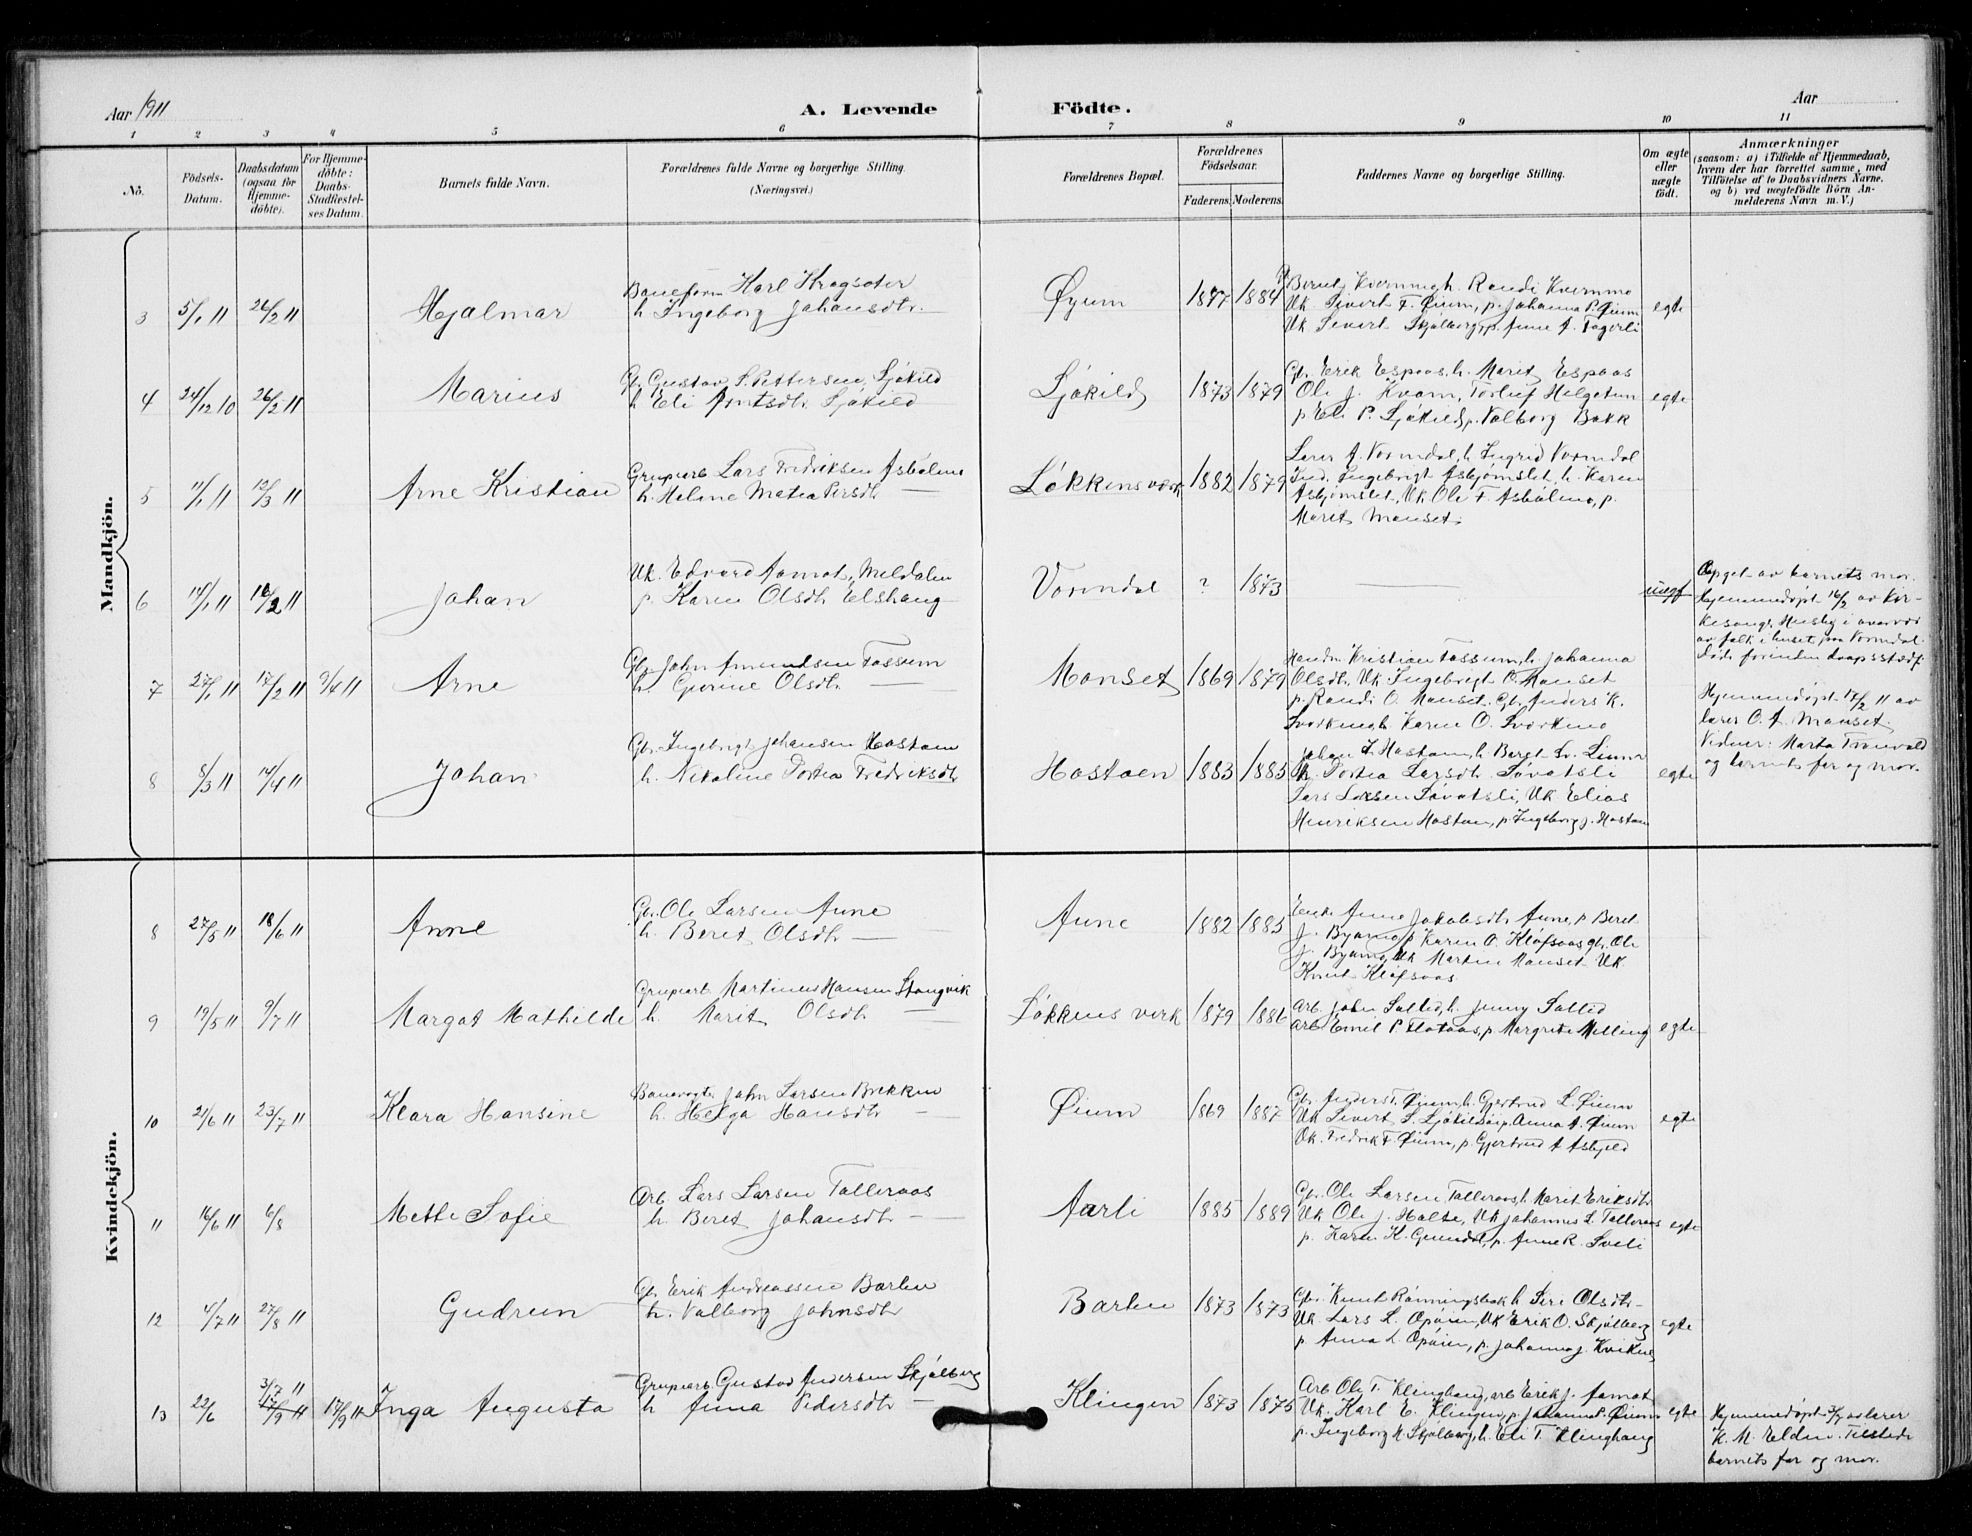 Aar 1911
A. Levende Födte.
Aar
1 2 3 4 5 6 7 8 9 10 11
Nô.
Födsels-Datum.
Daabsdatum (ogsaa för Hjemme-döbte).
For Hjemme-döbte: Daabs-Stadfæstel-ses Datum.
Barnets fulde Navn.
Forældrenes fulde Navne og borgerlige Stilling. (Næringsvei.)
Forældrenes Bopæl.
Forældrenes Födselsaar.
Faderens. Moderens.
Faddernes Navne og borgerlige Stilling.
Om ægte eller uægte födt.
Anmærkninger
(saasom: a) i Tilfælde af Hjemmedaab,
hvem der har forrettet samme, med
Tilföielse af to Daabsvidners Navne,
og b) ved uægtefödte Börn An-
melderens Navn m. V.)
Mandkjön.
3 5/1 11 26/2 11 Hjalmar
Baneform Karl Kragsæter
h. Ingeborg Johansdtr.
Øyum 1877 1884
Randi Kvernmo
Uk Sivert F. Øium, p. Johanna P. Øium
Uk Sivert Skjølberg, p. Anne A. Fagerli
egte
4 24/12 10 26/2 11 Marius
Gbr. Gustav S. Pettersen, Sjøkild
h. Eli Arntsdtr. Sjøkild
Sjøkild 1873 1879
Gbr. Erik Espaas, h. Marit Espaas
Ole J. Kvam, Torleif Helgetun
p. Eli P. Sjøkild, p. Valborg Bakk
egte
5 11/1 11 12/3 11 Arne Kristian
Grubearb. Lars Fredriksen Asbølmo
h. Helene Matea Persdtr. —
Løkkens værk 1882 1879
Lærer A. Vormdal, h. Ingrid Vormdal
Ingebrigt Asbjørnslet, h. Karen
Asbjørnslet, Uk Ole F. Asbølmo, p.
Marit Manset.
6 14/1 11 16/2 11 Johan
Uk. Edvard Aamot, Meldalen
p. Karen Olsdtr. Elshaug
Vormdal ? 1873
uegt
Opget av barnets mor.
Hjemmedøpt 16/2 av Kir-
kesang. Husby i overvær
av folk i huset paa Vormdal.
Døde forinden daapsstadf.
7 27/1 11 17/2 11 9/4 11 Arne
Gbr. John Amundsen Fossum
h. Gurine Olsdtr. —
Manset 1869 1879
Handm. Kristian Fossum, h. Johanna
Olsdtr. Uk Ingebrigt O. Manset
p. Randi O. Manset. Gbr. Anders K.
Svorkmo, h. Karen O. Svorkmo
Hjemmedøpt 17/2 11 av
lærer O. A. Manset.
Vidner: Marta Tronvold
og barnets far og mor.
8 8/3 11 14/4 11 Johan
Gbr. Ingebrigt Johansen Hostoen
h. Nikoline Dortea Fredriksdtr.
Hostoen 1883 1885
h. Dortea Larsdtr. Søvatsli
Lars Larsen Søvatsli, Uk Elias
Henriksen Hostoen, p. Ingeborg J. Hostoen
egte
Kvindekjön.
8 27/5 11 18/6 11 Anne
Gbr. Ole Larsen Aune
h. Beret Olsdtr. —
Aune 1882 1885
Enke Anne Jakobsdtr. Aune, p. Beret
J. Byamo, p. Karen O. Kløfsaas, gbr. Ole
J. Byamo, Uk Martin Manset, Uk
Knut Kløfsaas
9 19/5 11 9/7 11 Margot Mathilde
Grubearb. Martinus Hansen Stangvik
h. Marit Olsdtr. —
Løkkens verk 1879 1886
Arb. John Solled, h. Jenny Solled
Arb. Emil P. Flotaas, p. Margrete Melling
egte
10 21/6 11 23/7 11 Klara Hansine
Banevogter John Larsen Brekken
h. Helga Hansdtr. —
Øium 1869 1887
Gbr. Anders T. Øium, h. Gjertrud L. Øium
Uk Sivert S. Sjøkild, p. Anna A. Øium
Uk. Fredrik F. Øium, p. Gjertrud A. Asbjeld
egte
11 16/6 11 6/8 Mette Sofie
Arb. Lars Larsen Talleraas
h. Beret Johansdtr. —
Aarli 1885 1889
Gbr. Ole Larsen Talleraas, h. Marit Eriksdtr.
Uk Ole J. Holte, Uk Johannes L. Talleraas
p. Karen K. Grundal, p. Anne R. Sveli
egte
12 4/7 11 27/8 11 Gudrun
Gbr. Erik Andreassen Barlin
h. Valborg Johnsdtr.
Barlin 1873 1873
Gbr. Knut Rønningsbak, h. Siri Olsdtr.
Uk. Lars L. Opøien, Uk Erik O. Skjølberg
p. Anna L. Opøien, p. Johanna J. Kvikne
egte
13 22/6 3/7 11 17/9 11 17/9 11 Inga Augusta
Grubearb. Gustav Andersen Skjølberg
h. Anna Pedersdtr. —
Klingen 1873 1875
Arb. Ole T. Klinghaug, arb. Erik J. Aamot
Uk. Karl E. Klingen, p. Johanna P. Øium
p. Ingeborg M. Skjølberg, h. Eli T. Klinghaug
egte
Hjemmedøpt 3/7 av lærer
K. M. Elden. Tilstede
barnets far og mor.